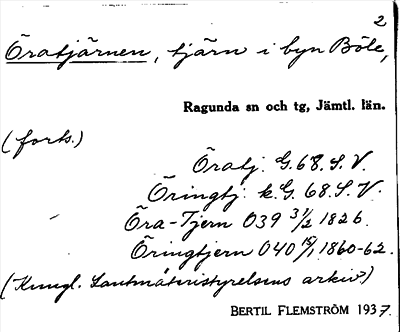 2
Öratjärnen, tjärn i byn Böle,
Ragunda sn och tg, Jämtl. län.
(forts.)
Öratj. G.68.S.V.
Öringtj. k.G. 68.S.V.
Öra-Tjern O39 31/2 1826.
Öringtjern O40 15/1, 1860-62.
(Kungl. Lantmäteristyrelsens arkiv)
BERTIL FLEMSTRÖM 1937.